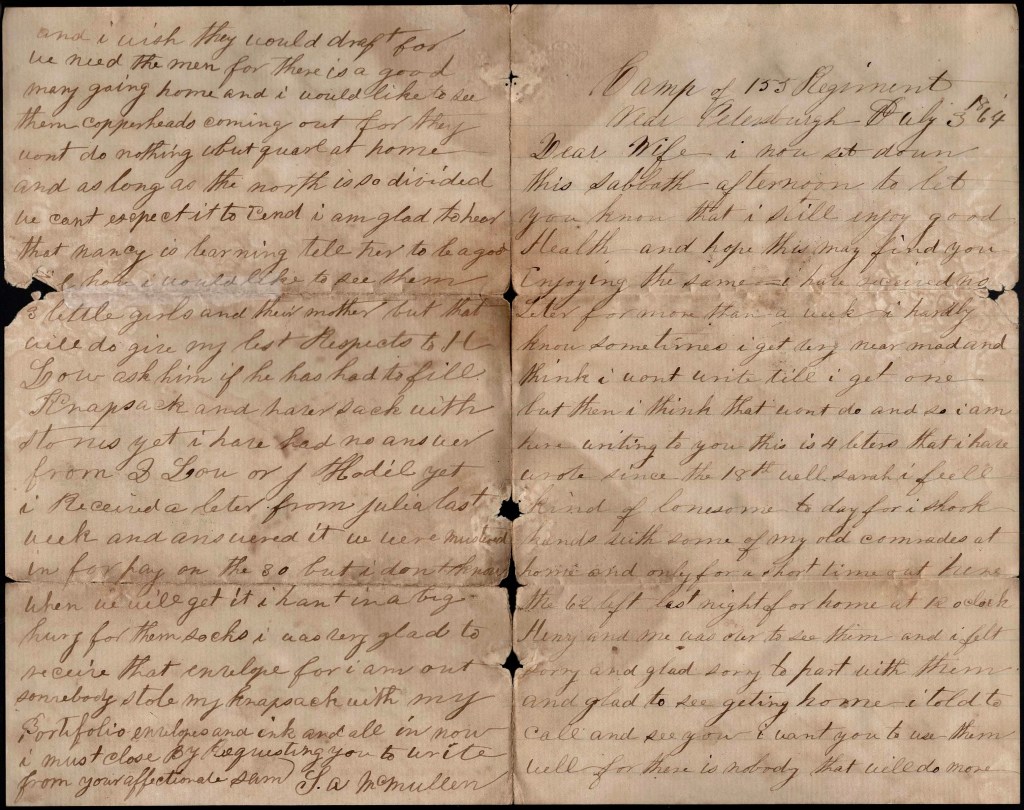 Camp of 155 Regiment
Near Petersburgh July 3 1864
Dear Wife i now set down
this sabbath afternoon to let
you know that i still enjoy good
Health and hope this may find you
Enjoying the same i have received no
leter for more than a week i hardly
know sometimes i get very near mad and
think i wont write till i get one
but then i think that wont do and so i am
here writing to you this is 4 leters that i have
wrote since the 18th well sarah i feell
kind of lonesome to day for i shook
hands with some of my old comrades at
home and only for a short time out here
the 62 left last night for home at 12 oclock
Henry and me was over to see them and i felt
sorry and glad sorry to part with them
and glad to see geting home i told to
call and see you i want you to use them
well for there is nobody that will do more
and i wish they would draft for
we need the men for there is a good
many going home and i would like to see
them copperheads coming out for they
wont do nothing but quarl at home
and as long as the north is so divided
we cant expect it to end i am glad to hear
that nancy is learning tell her to be a good
how i would like to see them
3 little girls and their mother but that
will do give my best Respects to H
Low ask him if he has had to fill
Knapsack and haversack with
stones yet i have had no answer
from D Low or J Hodil yet
i Received a leter from julia last
week and answered it we were mustered
in for pay on the 30 but i dont know
when we will get it i hant in a big
hury for them socks i was very glad to
receive that envelope for i am out
somebody stole my knapsack with my
Portifolio envelopes and ink and all in now
i must close By Requesting you to write
from your affectionate Sam S. A McMullen